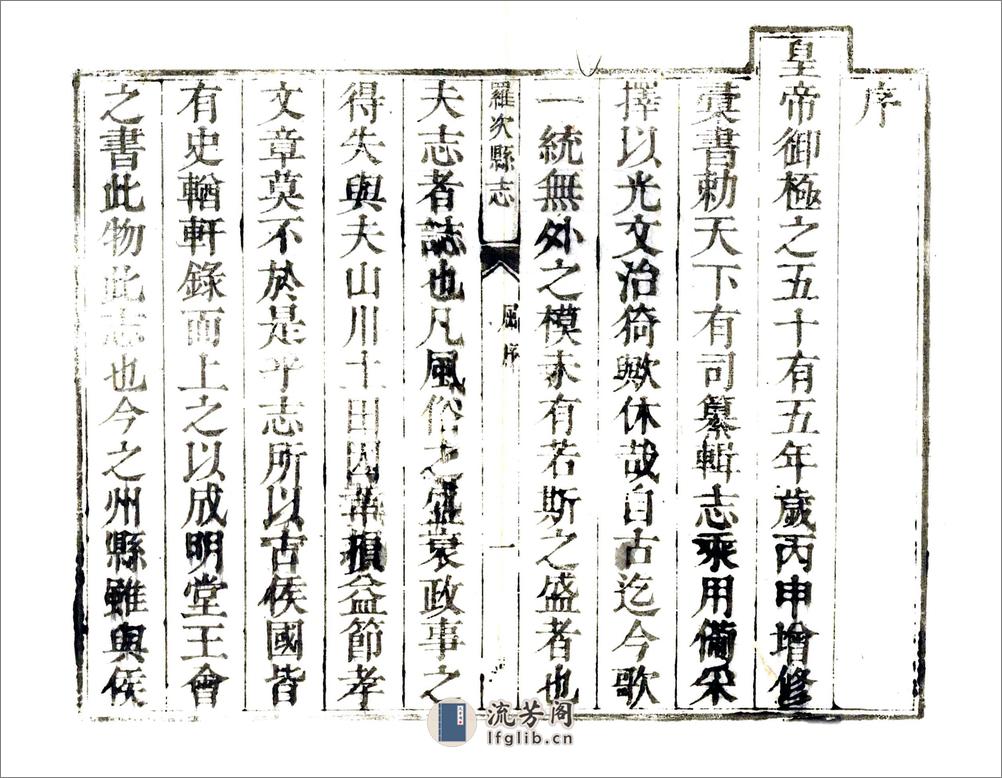 序
皇帝御極之五十有五年歲丙申增修
彙書勅天下有司纂輯志乘用備采
擇以光文治猗歟休哉自古迄今歌
一統無外之模未有若斯之盛者也
羅次縣志
屈序
一
夫志者誌也凡風俗之盛衰政事之
得失與夫山川土田因革損益節孝
文章莫不於是乎志所以古侯國皆
有史輶軒錄而上之以成明堂王會
之書此物此志也今之州縣雖與侯
流芳阁
lfglib.cn